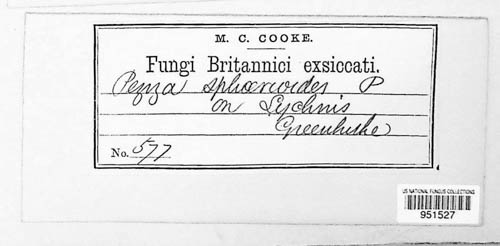 M. C. COOKE.
Fungi Britannici exsiccati.
Peziza sphaerioides P
on Lychnis
Greenhithe
No. 577
US NATIONAL FUNGUS COLLECTIONS
951527